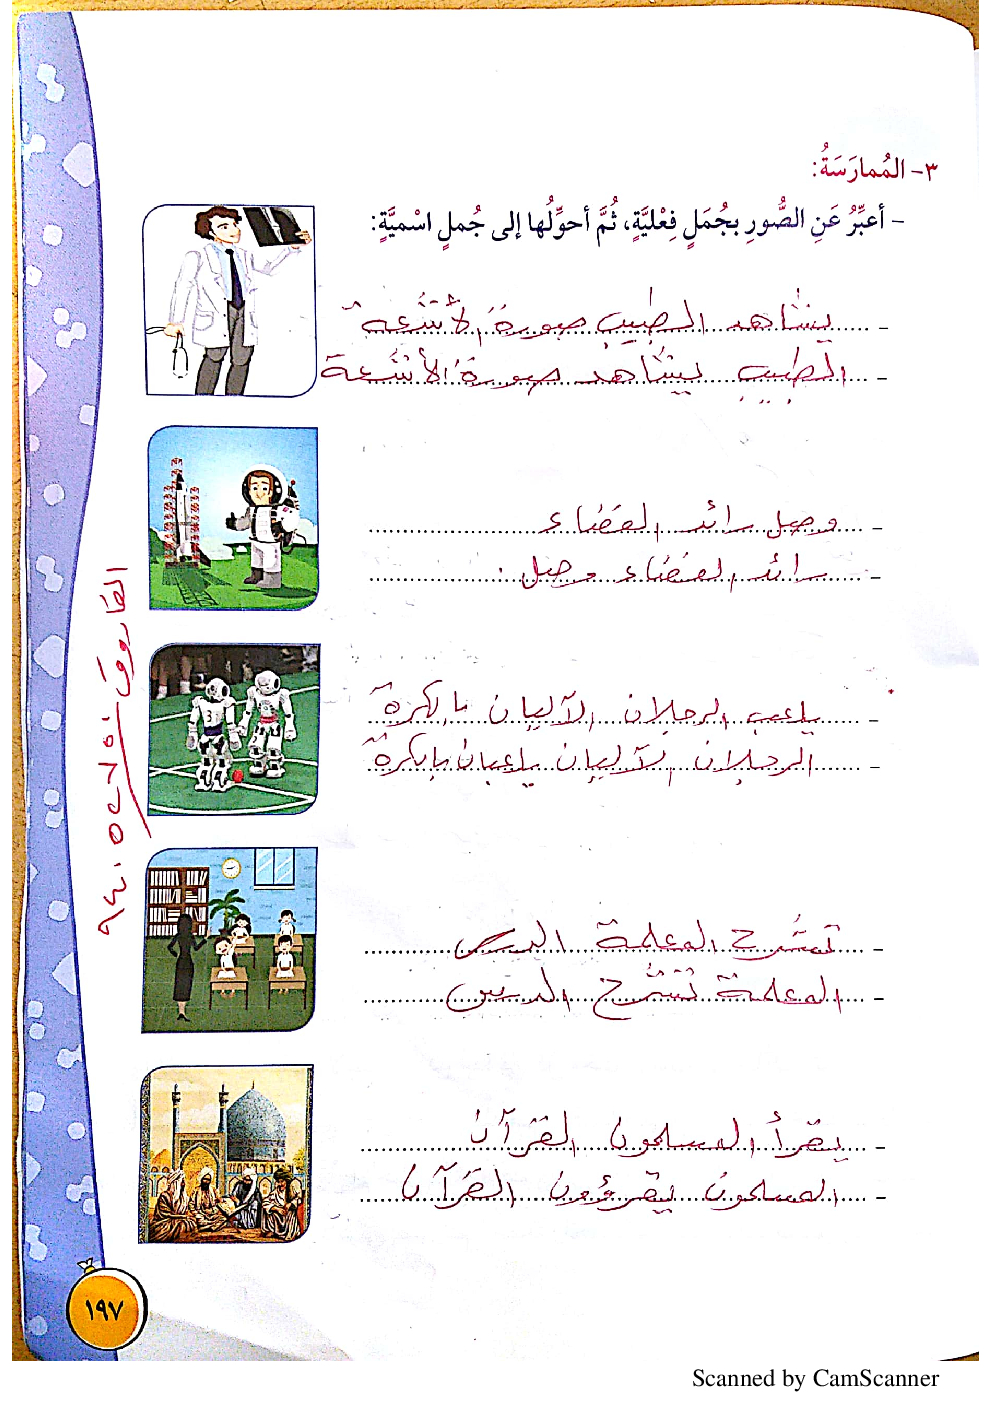 ٣- المُمارَسَةُ:
- أعبِّرُ عَنِ الصُّورِ بجُمَلٍ فِعْليَّةٍ، ثُمَّ أحوِّلُها إلى جُملٍ اسْميَّةٍ:
- يشاهد الطبيب صورة الأشعة
- الطبيب يشاهد صورة الأشعة
- وصل رائد الفضاء
- رائد الفضاء وصل .
- يلعب الرجلان الآليان بالكرة
- الرجلان الآليان يلعبان بالكرة
- تشرح المعلمة الدرس
- المعلمة تشرح الدرس
- يقرأ المسلمون القرآن
- المسلمون يقرؤون القرآن
الفاروق
١٩٧
Scanned by CamScanner